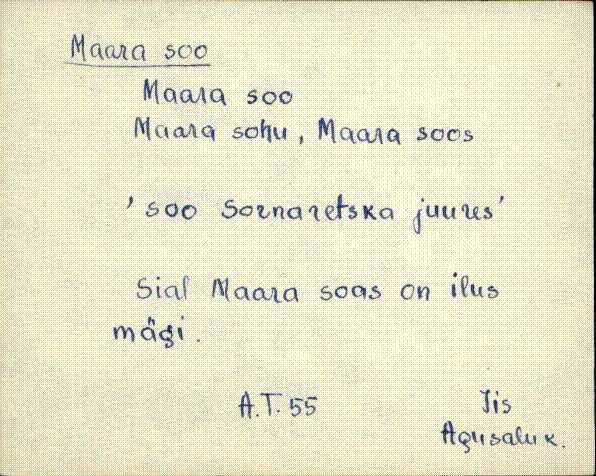 Maara soo
Maara soo
Maara sohu, Maara soos
'soo Sornaretska juures'
Sial Maara soas on ilus
mägi.
A.T. 55
Jis
Agusaluk.